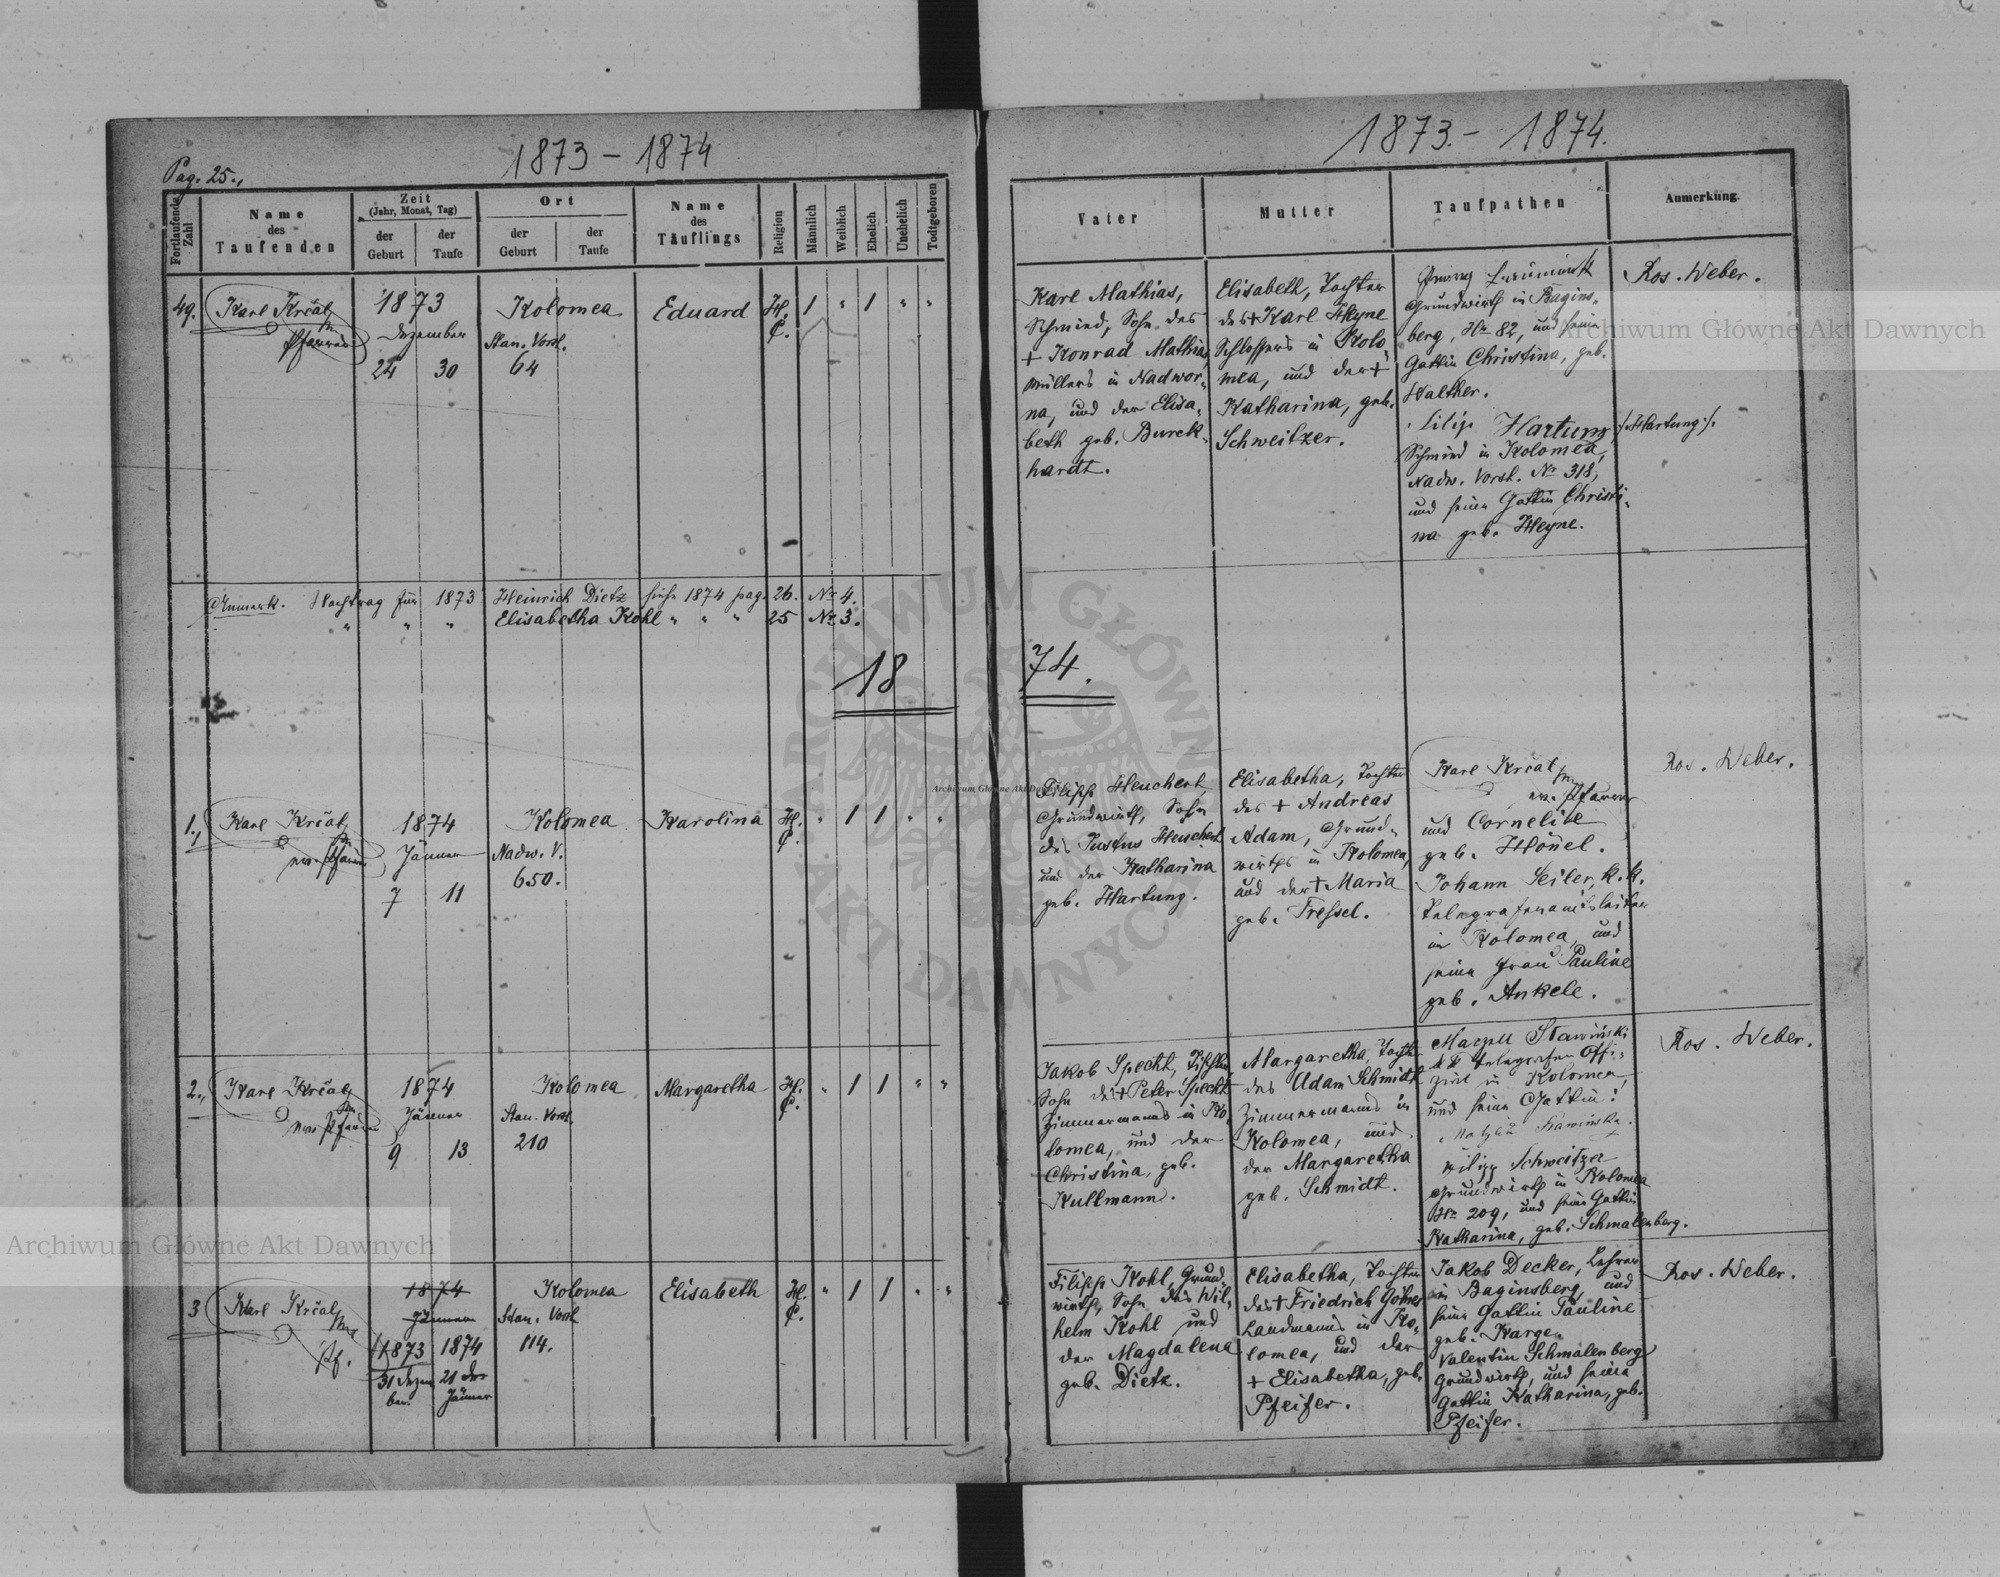 1873 – 1874
Pag. 25.,
Fortlaufende Zahl
Name
des
Taufenden
Zeit
(Jahr, Monat, Tag)
der
Geburt
der
Taufe
Ort
der
Geburt
der
Taufe
Name
des
Täuflings
Religion
Männlich
Weiblich
Ehelich
Unehelich
Todtgeboren
49.
Karl Krčal
Pfarrer
1873
Dezember
24 30
Kolomea
Stan. Vorst.
64
Eduard
H.
C.
1 " 1 " "
Anmerk. Nachtrag für 1873 Heinrich Dietz siehe 1874 pag. 26. No 4.
" " " Elisabetha Kohl " " " 25 No 3.
18
1.,
Karl Krčal
ev. Pfarrer
1874
Jänner
7 11
Kolomea
Nadw. V.
650.
Karolina
H.
C.
" 1 1 " "
2.,
Karl Krčal
ev. Pfarrer
1874
Jänner
9 13
Kolomea
Stan. Vorst.
210
Margaretha
H.
C.
" 1 1 " "
3
Karl Krčal
Pf.
1874
Jänner
1873 1874
31 Dezem 21 der
ber. Jänner
Kolomea
Stan. Vorst
114.
Elisabeth
H.
C.
" 1 1 " "
1873. – 1874.
Vater
Mutter
Taufpathen
Anmerkung.
Karl Mathias,
Schmied, Sohn des
+ Konrad Mathias,
Müllers in Nadwor-
na, und der Elisa-
beth geb. Burck-
hardt.
Elisabeth, Tochter
des + Karl Heyne
Schlossers in Kolo
mea, und der +
Katharina, geb.
Schweitzer.
Grundwirth in Bagins-
berg, No 82, und seine
Gattin Christina, geb.
Walther.
Filipp Hartung /:Hartung:/.
Schmied in Kolomea,
Nadw. Vorst. No 318,
und seine Gattin Christi-
na geb. Heyne.
Ros. Weber.
74.
Filipp Heuchert,
Grundwirth, Sohn
des Justus Heuchert
und der Katharina
geb. Hartung.
Elisabetha, Tochter
des + Andreas
Adam, Grund-
wirths in Kolomea,
und der + Maria
geb. Tressel.
Karl Krčal
ev. Pfarrer
und Cornelie
geb. Hönel.
Johann Seiler, k. k.
Telegrafenamtsleiter
in Kolomea, und
seine Frau Pauline
geb. Ankele.
Ros. Weber.
Jakob Specht, Tischler,
Sohn des + Peter Specht
Zimmermanns in Ko
lomea, und der
Christina, geb.
Kullmann.
Margaretha, Tochter
des Adam Schmidt
Zimmermanns in
Kolomea, und
der Margaretha
geb. Schmidt.
Sławiński
k k Telegrafen Offi-
zial in Kolomea,
und seine Gattin:
Filipp Schweitzer
Grundwirth in Kolomea
No 209, und seine Gattin
Katharina, geb. Schmalenberg.
Ros. Weber.
Filipp Kohl, Grund-
wirth, Sohn des Wil-
helm Kohl und
der Magdalena
geb. Dietz.
Elisabetha, Tochter
des + Friedrich Göhres
Landmanns in Ko-
lomea, und der
+ Elisabetha, geb.
Pfeifer.
Jakob Decker, Lehrer
in Baginsberg und
seine Gattin Pauline
geb. Karge.
Valentin Schmalenberg
Grundwirth, und seine
Gattin Katharina, geb.
Pfeifer.
Ros. Weber.
Archiwum Główne Akt Dawnych
Archiwum Główne Akt Dawnych
Archiwum Główne Akt Dawnych
ARCHIWUM GŁÓWNE AKT DAWNYCH